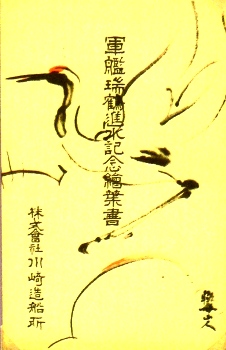 軍艦瑞鶴進水記念繪葉書
株式會社川崎造船所